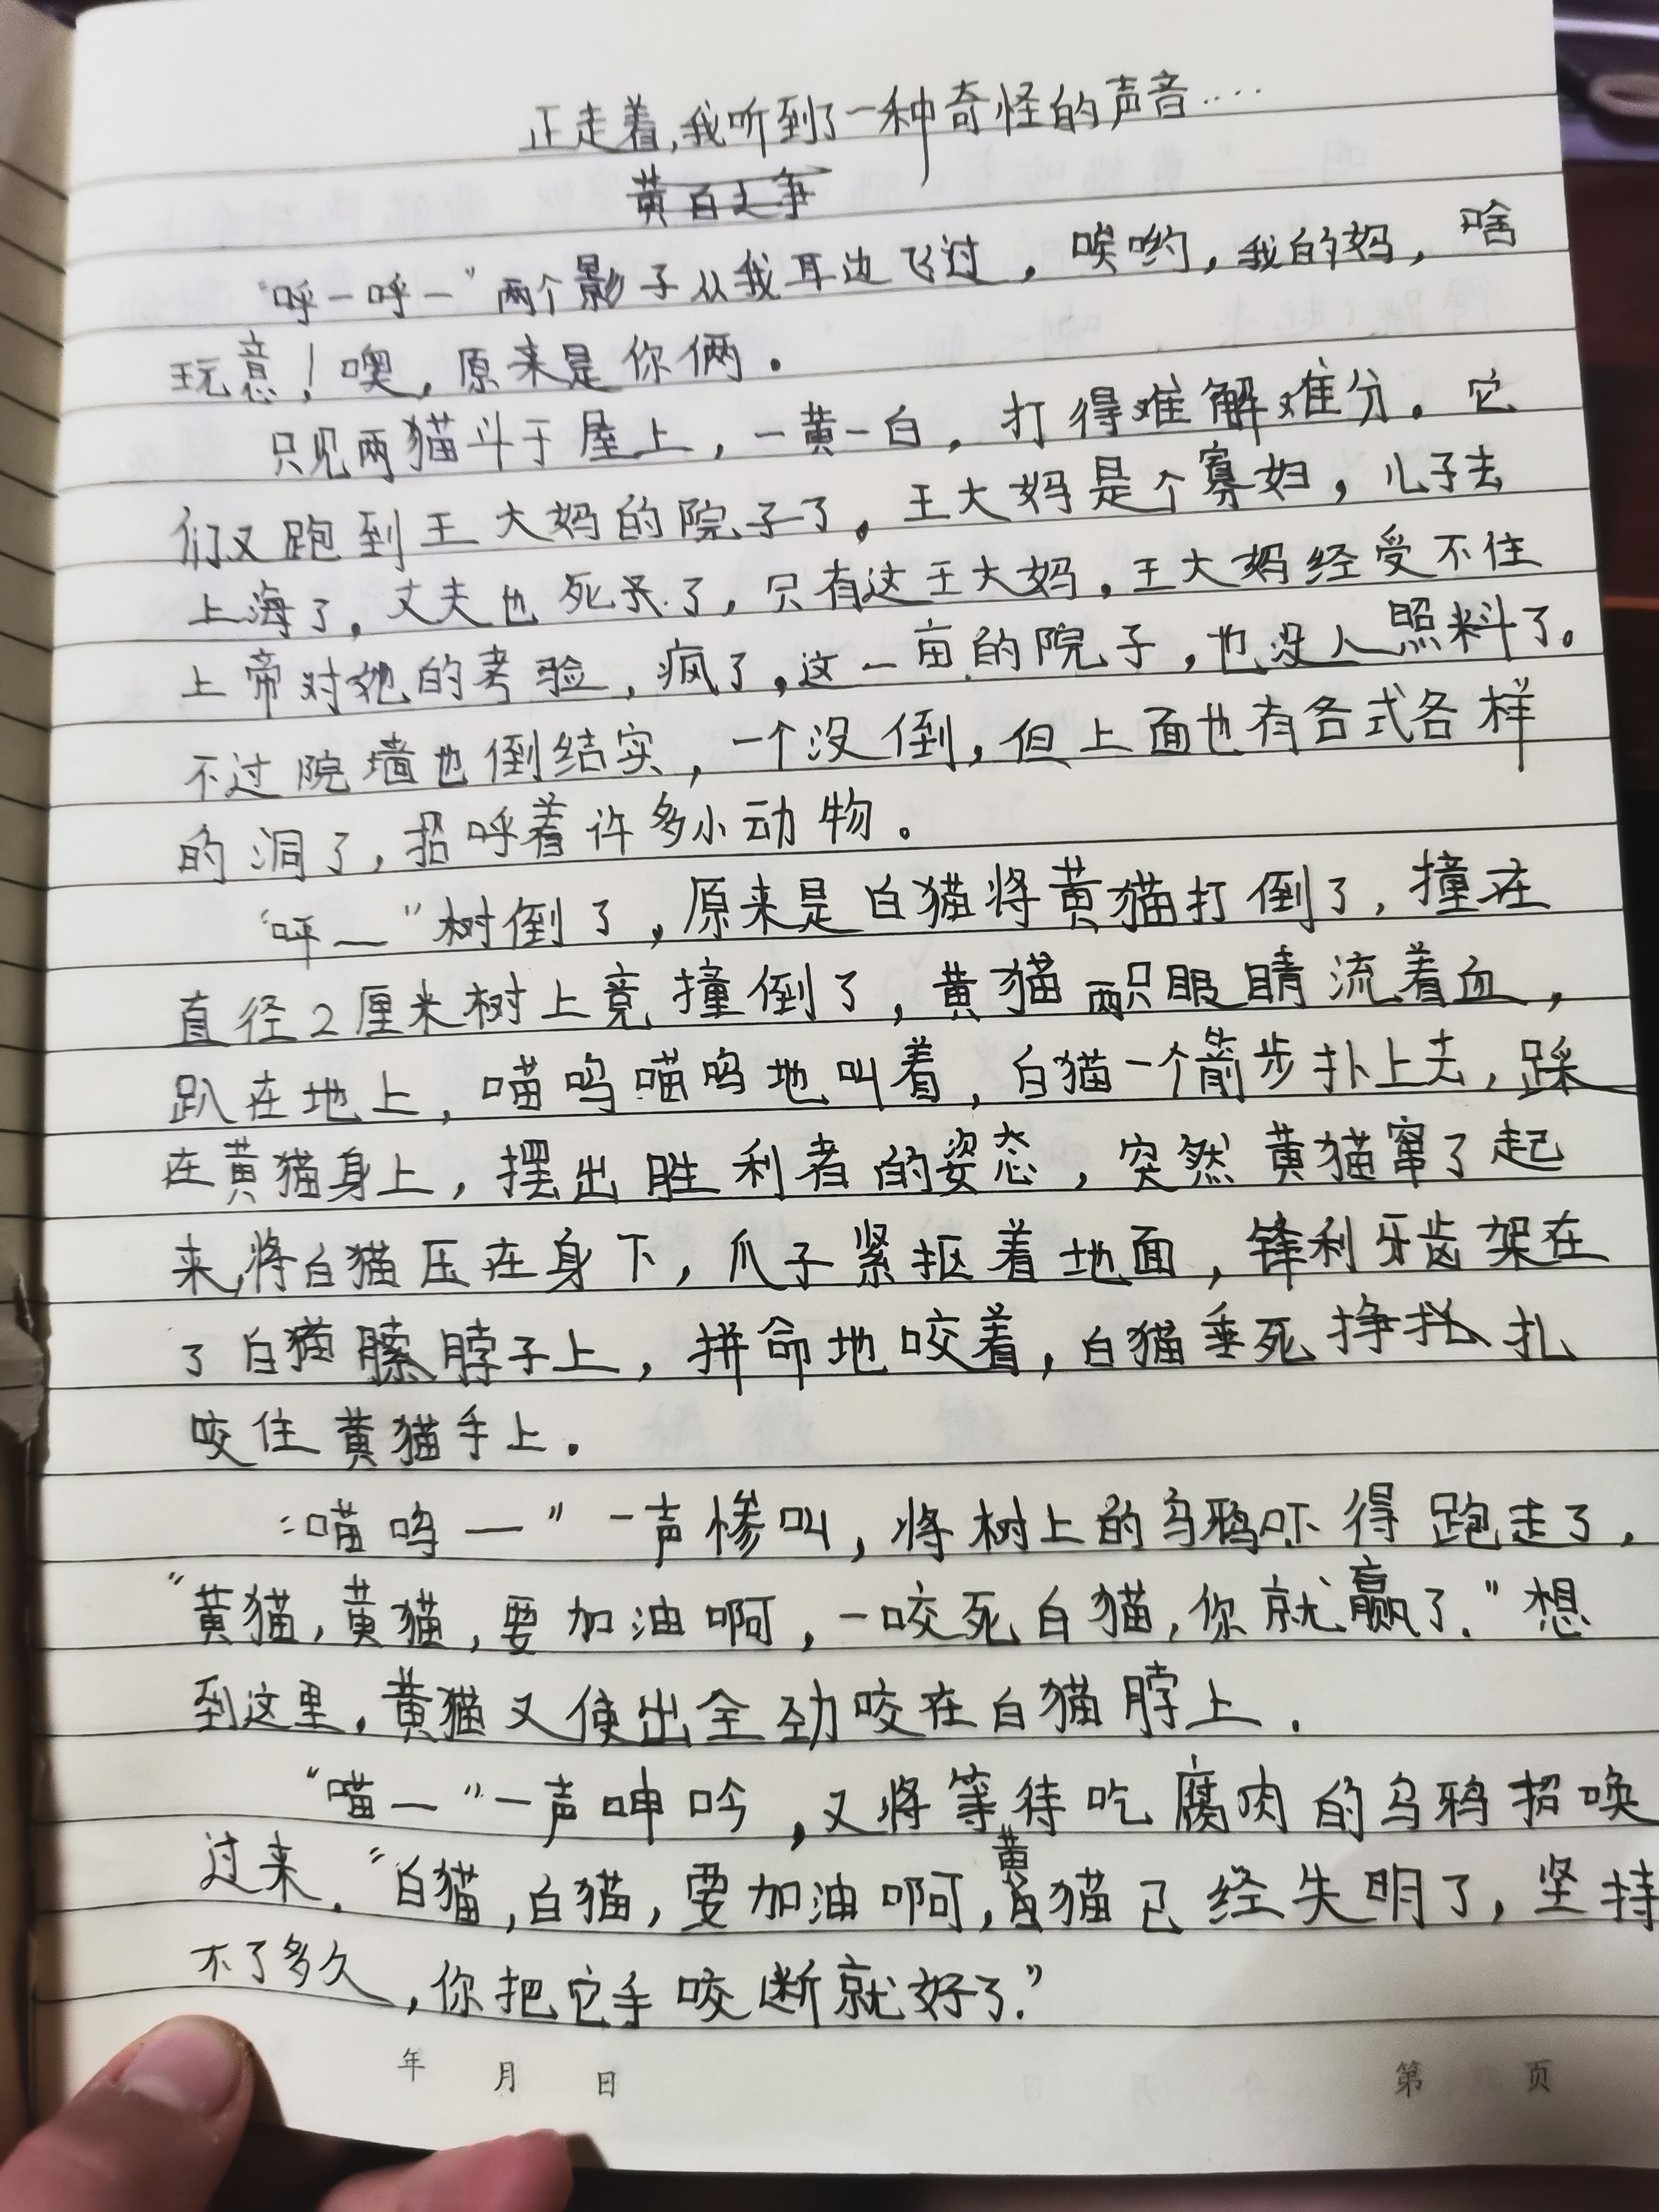 正走着,我听到了一种奇怪的声音....
黄百之争
“呼一呼一”两个影子从我耳边飞过，唉哟，我的妈，啥
玩意！噢，原来是你俩。
只见两猫斗于屋上，一黄一白，打得难解难分。它
们又跑到王大妈的院子了。王大妈是个寡妇，儿子去
上海了，丈夫也死了，只有这王大妈，王大妈经受不住
上帝对她的考验，疯了，这一亩的院子，也没人照料了。
不过院墙也倒结实，一个没倒，但上面也有各式各样
的洞了，招呼着许多小动物。
“呼——”树倒了，原来是白猫将黄猫打倒了，撞在
直径2厘米树上竟撞倒了，黄猫两只眼睛流着血，
趴在地上，喵呜喵呜地叫着，白猫一个箭步扑上去，踩
在黄猫身上，摆出胜利者的姿态，突然黄猫窜了起
来,将白猫压在身下，爪子紧抠着地面，锋利牙齿架在
了白猫脖子上，拼命地咬着，白猫垂死挣扎
咬住黄猫手上。
“喵呜——”一声惨叫，将树上的乌鸦吓得跑走了，
“黄猫，黄猫，要加油啊，一咬死白猫，你就赢了.”想
到这里，黄猫又使出全劲咬在白猫脖上.
“喵一”一声呻吟，又将等待吃腐肉的乌鸦招唤
过来.“白猫，白猫，要加油啊，黄猫已经失明了，坚持
不了多久，你把它手咬断就好了.”
年 月 日 第 页